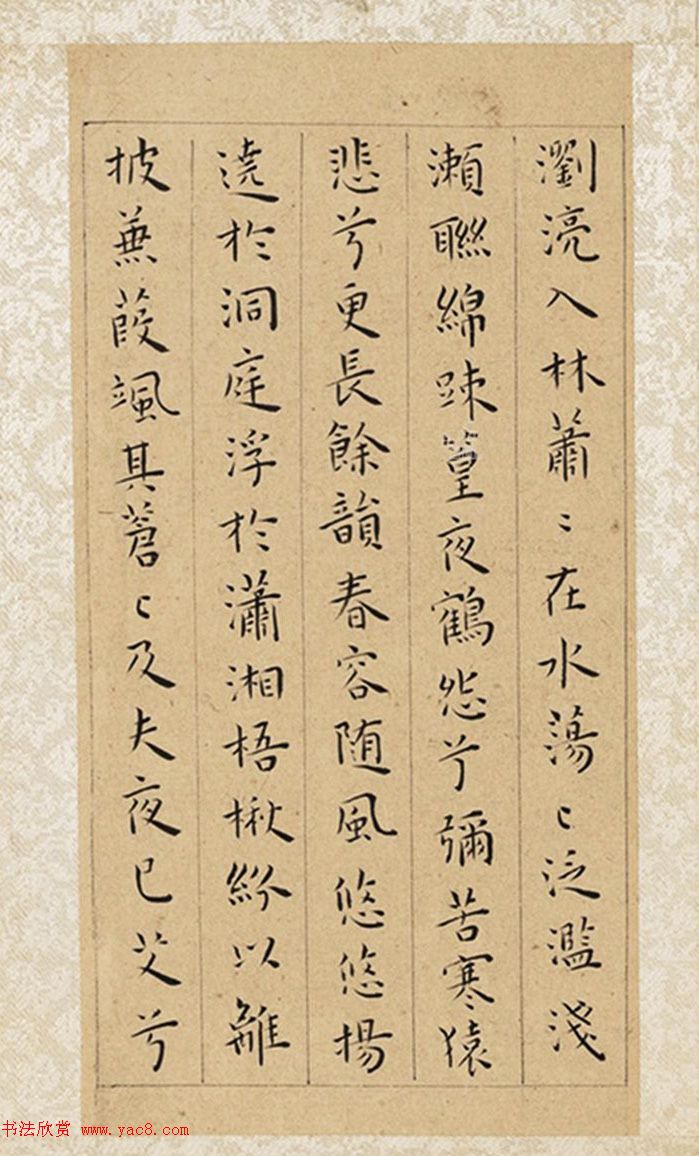 瀏湸入林蕭〻在水蕩〻泛濫淺
瀨聯綿踈篁夜鶴怨兮彌苦寒猿
悲兮更長餘韻舂容随風悠悠揚
遶於洞庭浮於瀟湘梧楸紛以離
披蒹葭颯其蒼〻及夫夜已艾兮
书法欣赏 www.yac8.com